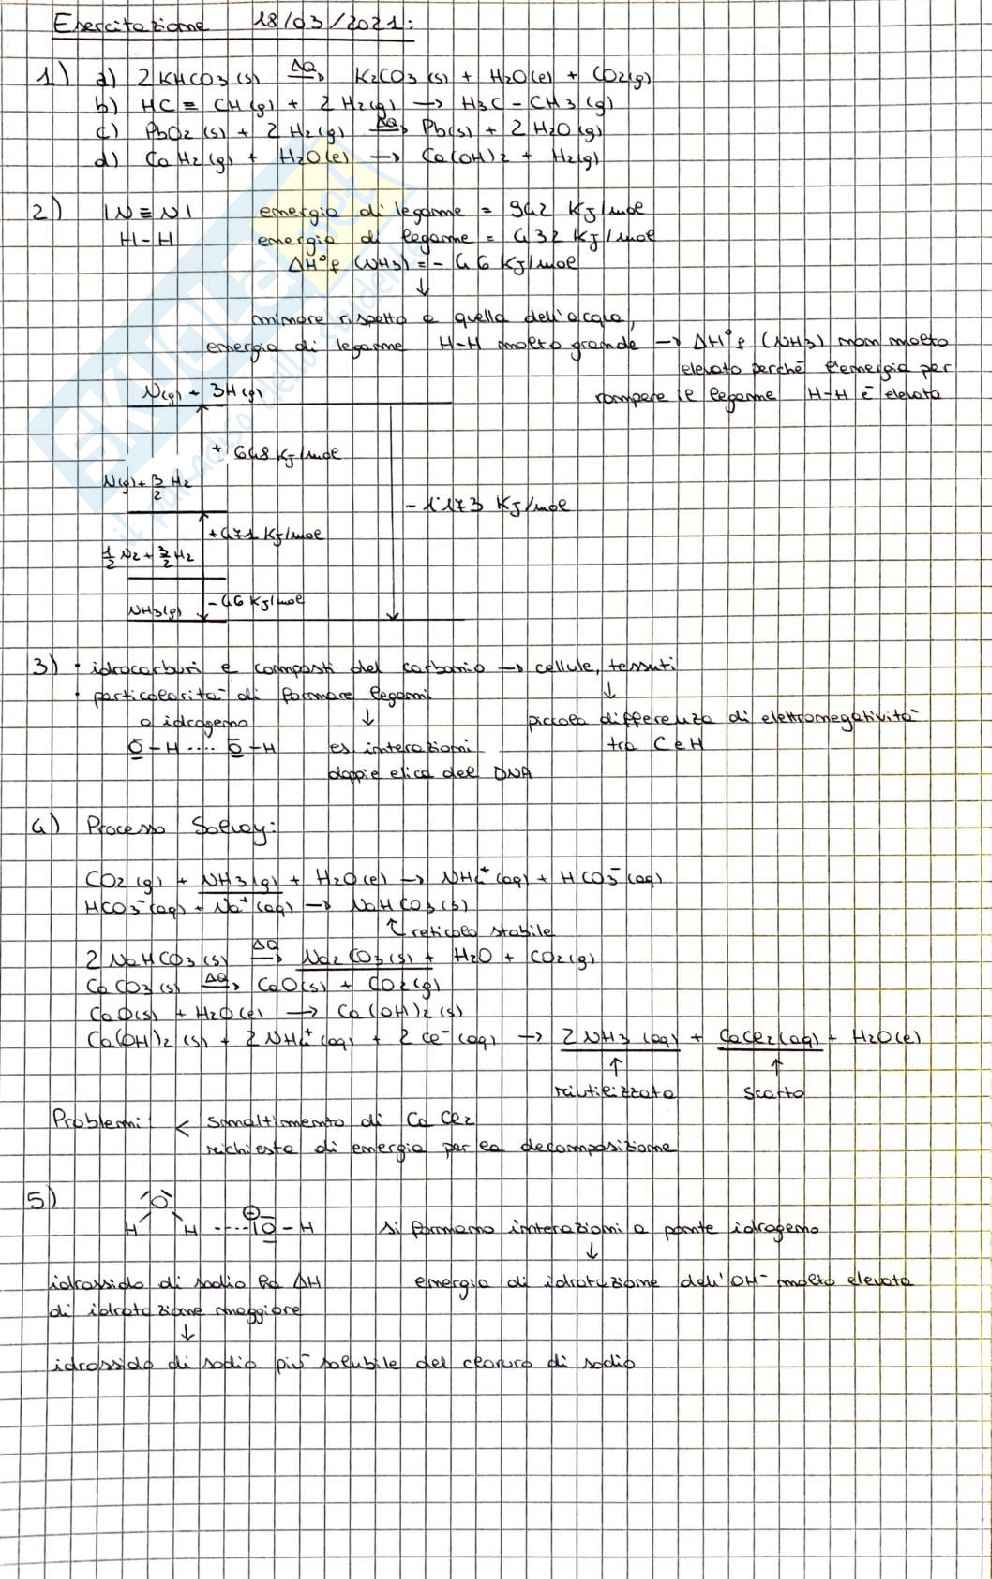 Esercitazione 18/03/2021:
1) a) 2KHCO3(s) ΔQ→ K2CO3(s) + H2O(l) + CO2(g)
b) HC≡CH(g) + 2H2(g) → H3C-CH3(g)
c) PbO2(s) + 2H2(g) ΔQ→ Pb(s) + 2H2O(g)
d) CaH2(g) + H2O(l) → Ca(OH)2 + H2(g)
2) |N≡N| energia di legame = 942 KJ/mol
H-H energia di legame = 432 KJ/mol
ΔH°f (NH3) = -46 KJ/mol
↓
minore rispetto a quella dell'acqua,
energia di legame H-H molto grande → ΔH°f (NH3) non molto
elevato perché l'energia per
rompere il legame H-H è elevata
N(g) + 3H(g)
+648 KJ/mol
N(g) + 3/2 H2
-1173 KJ/mol
+471 KJ/mol
1/2 N2 + 3/2 H2
-46 KJ/mol
NH3(g)
3) · idrocarburi e composti del carbonio → cellule, tessuti
· particolarità di formare legami
a idrogeno ↓ piccola differenza di elettronegatività
O-H .... O-H es. interazioni tra C e H
doppia elica del DNA
4) Processo Solvay:
CO2(g) + NH3(g) + H2O(l) → NH4+(aq) + HCO3-(aq)
HCO3-(aq) + Na+(aq) → NaHCO3(s)
↑ reticolo stabile
2NaHCO3(s) ΔQ→ Na2CO3(s) + H2O + CO2(g)
CaCO3(s) ΔQ→ CaO(s) + CO2(g)
CaO(s) + H2O(l) → Ca(OH)2(s)
Ca(OH)2(s) + 2NH4+(aq) + 2Cl-(aq) → 2NH3(aq) + CaCl2(aq) + H2O(l)
↑ ↑
riutilizzata scarto
Problemi < smaltimento di CaCl2
richiesta di energia per la decomposizione
5) O
H H ....|O-H si formano interazioni a ponte idrogeno
↓
idrossido di sodio ha ΔH energia di idratazione dell'OH- molto elevata
di idratazione maggiore
↓
idrossido di sodio più solubile del cloruro di sodio